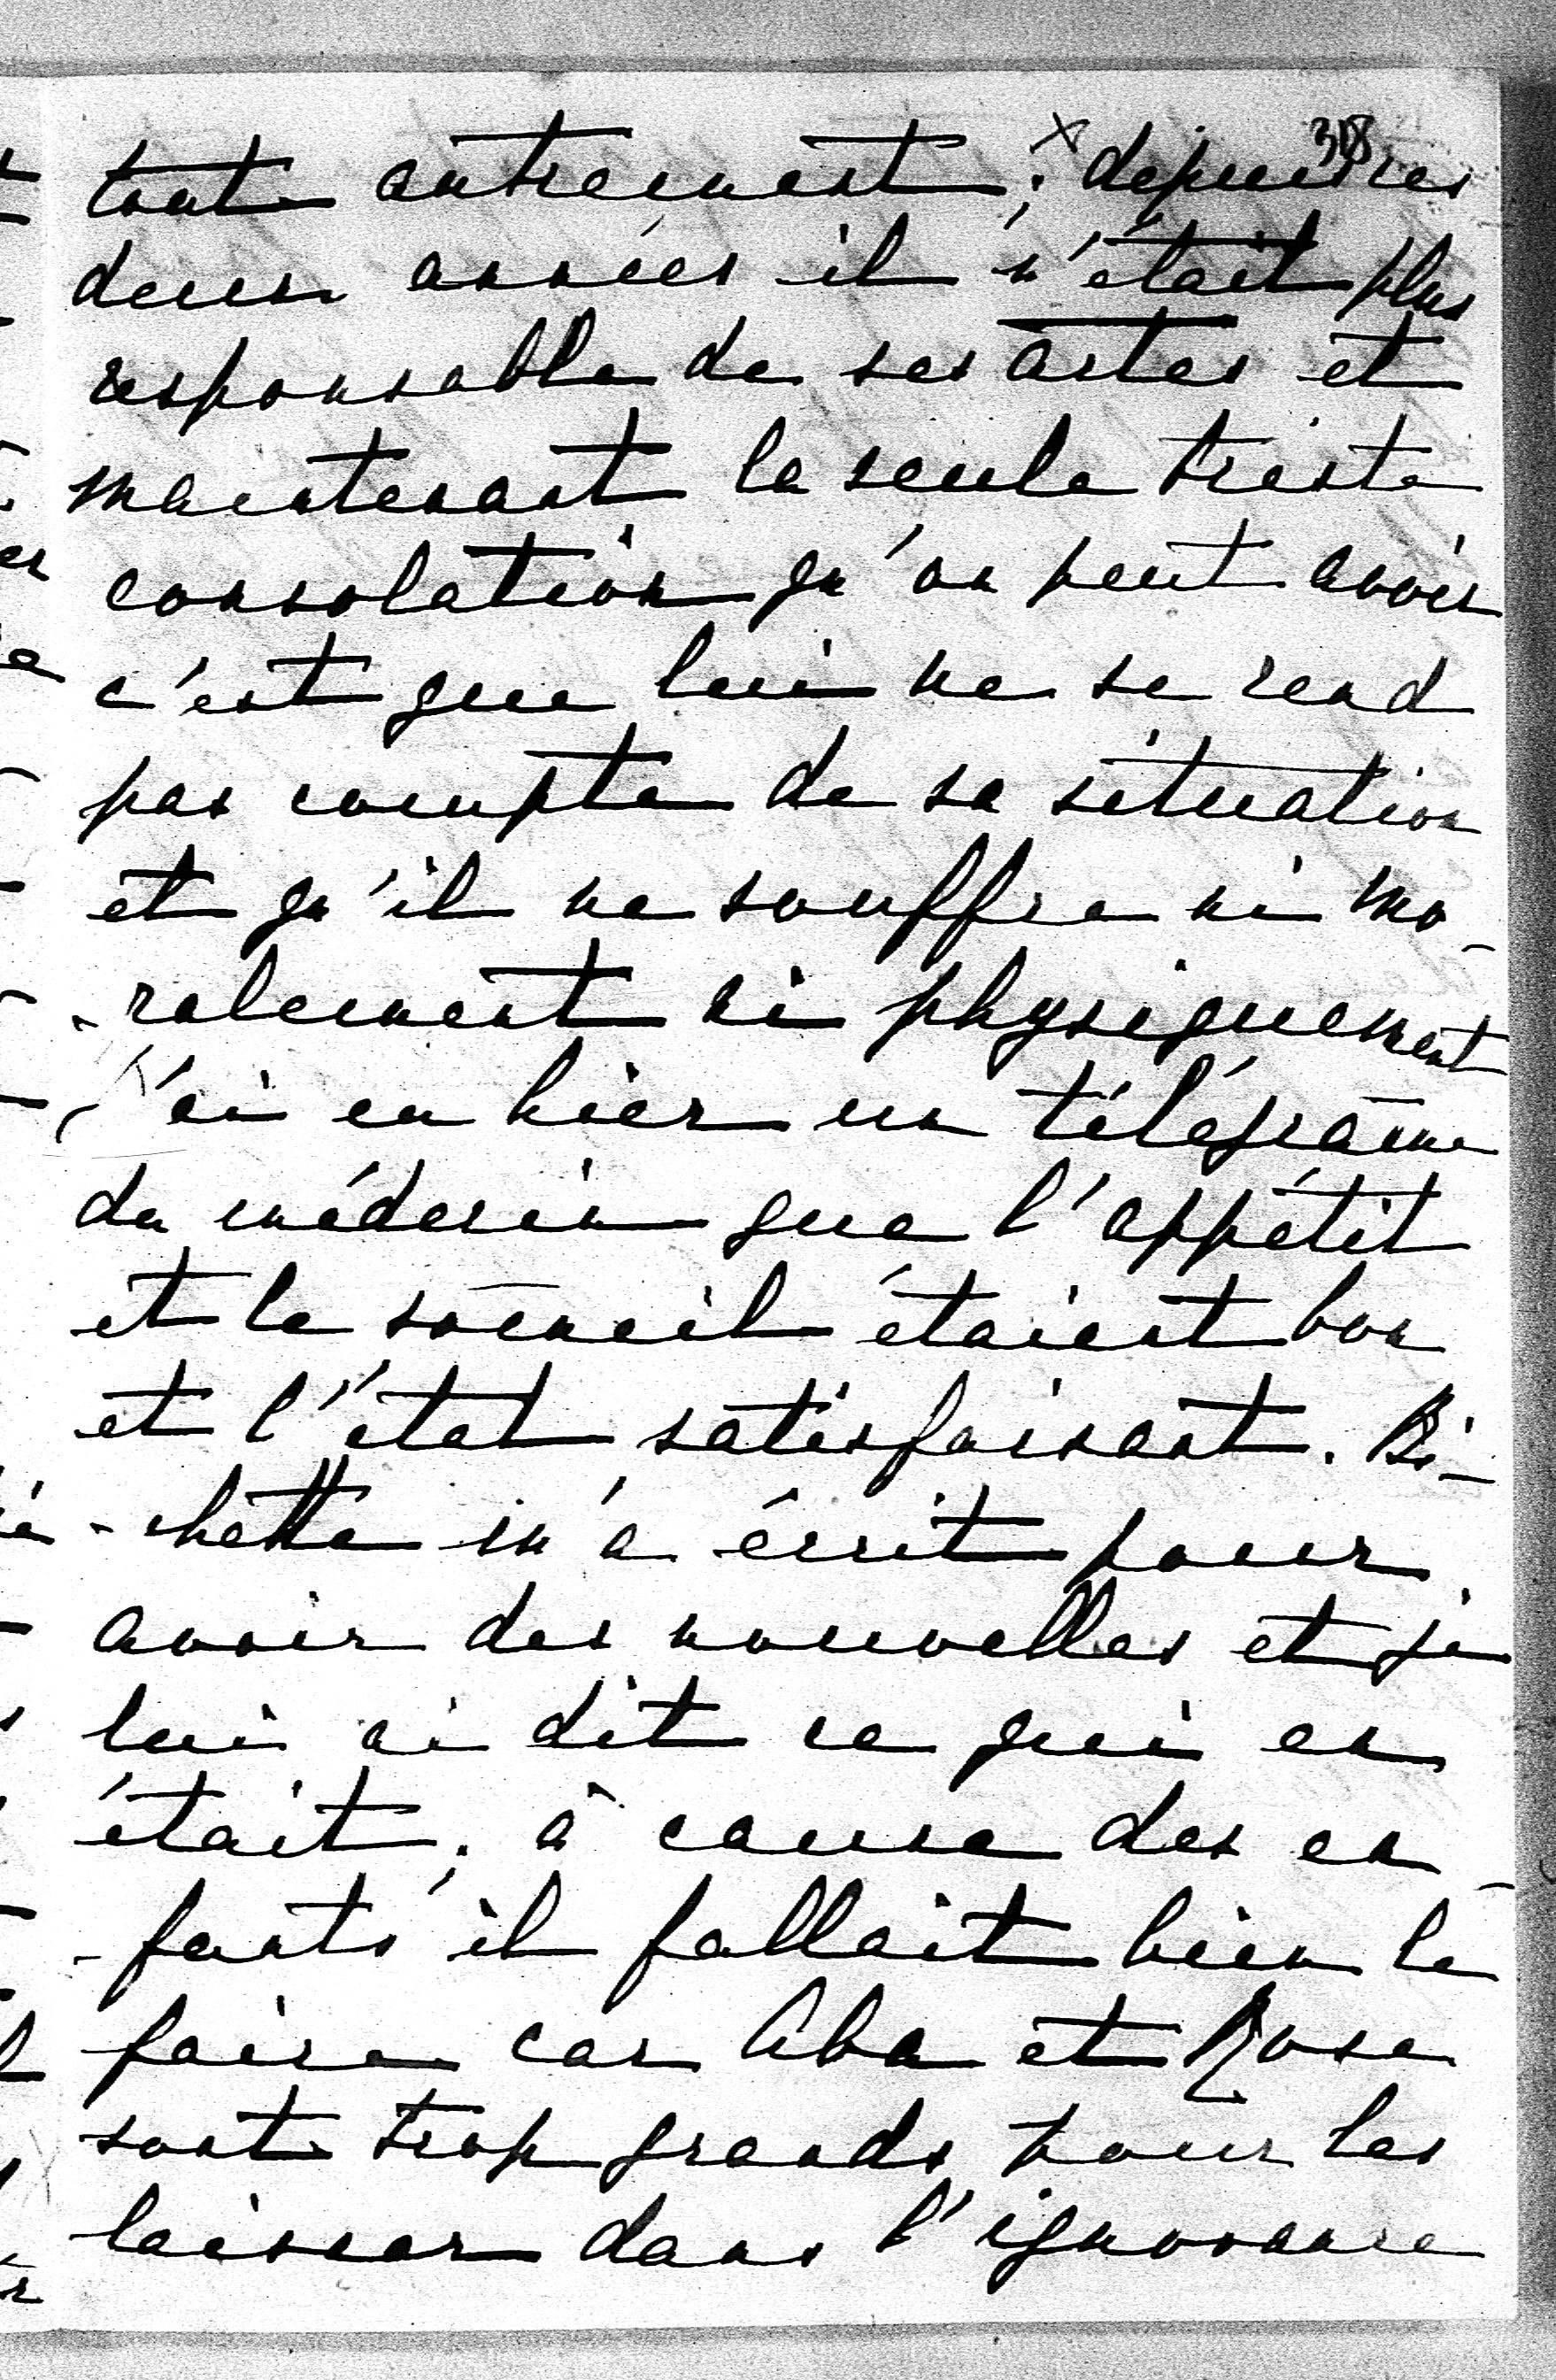 318
tout autrement; × depuis ces
deux années il n'était plus
responsable de ses actes et
maintenant la seule triste
consolation qu'on peut avoir
c'est que lui ne se rend
pas compte de sa situation
et qu'il ne souffre ni mo-
-ralement ni physiquement
j'ai eu hier un télégramme
du médecin que l'appétit
et le sommeil étaient bon
et l'état satisfaisant. Bi-
-chette m'a écrit pour
avoir des nouvelles et je
lui ai dit ce qui en
était; à cause des en-
-fants il fallait bien le
faire car Aba et Rose
sont trop grands pour les
laisser dans l'ignorance